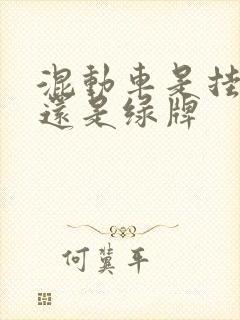 混動車是挂
還是绿牌
何冀平